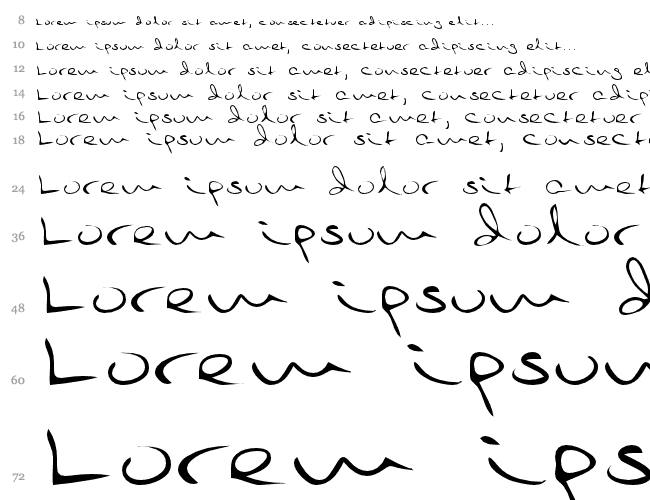 8 Lorem ipsum dolor sit amet, consectetuer adipiscing elit...
10 Lorem ipsum dolor sit amet, consectetuer adipiscing elit...
12 Lorem ipsum dolor sit amet, consectetuer adipiscing el
14 Lorem ipsum dolor sit amet, consectetuer adip
16 Lorem ipsum dolor sit amet, consectetuer
18 Lorem ipsum dolor sit amet, consect
24 Lorem ipsum dolor sit amet
36 Lorem ipsum dolor
48 Lorem ipsum d
60 Lorem ipsu
72 Lorem ips